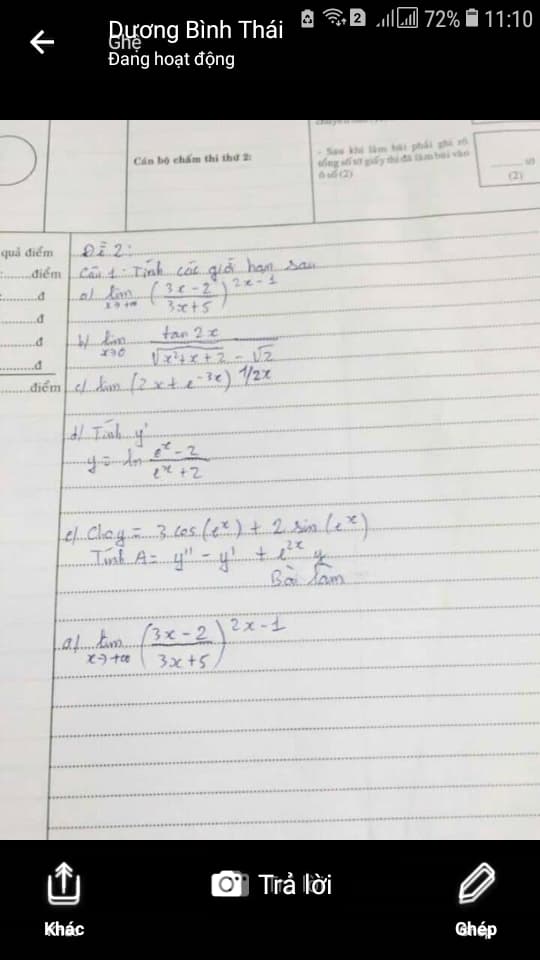 Dương Bình Thái
72% 11:10
Ghệ
Đang hoạt động
Cán bộ chấm thi thứ 2:
- Sau khi làm bài phải ghi rõ
tổng số tờ giấy thi đã làm bài vào
ô số (2)
...... tờ
(2)
quả điểm
......điểm
......đ
......đ
......đ
......đ
......điểm
Đề 2:
Câu 1: Tính các giới hạn sau
a) lim x→+∞ (3x-2 / 3x+5)^2x-1
b) lim x→0 tan 2x / √x²+x+2 - √2
c) lim (2x+e^-3x)^1/2x
d) Tính y'
y = ln e^x-2 / e^x+2
e) Cho y = 3 cos(e^x) + 2 sin(e^x)
Tính A = y'' - y' + e^2x y
Bài làm
a) lim x→+∞ (3x-2 / 3x+5)^2x-1
Khác
Trả lời
Ghép